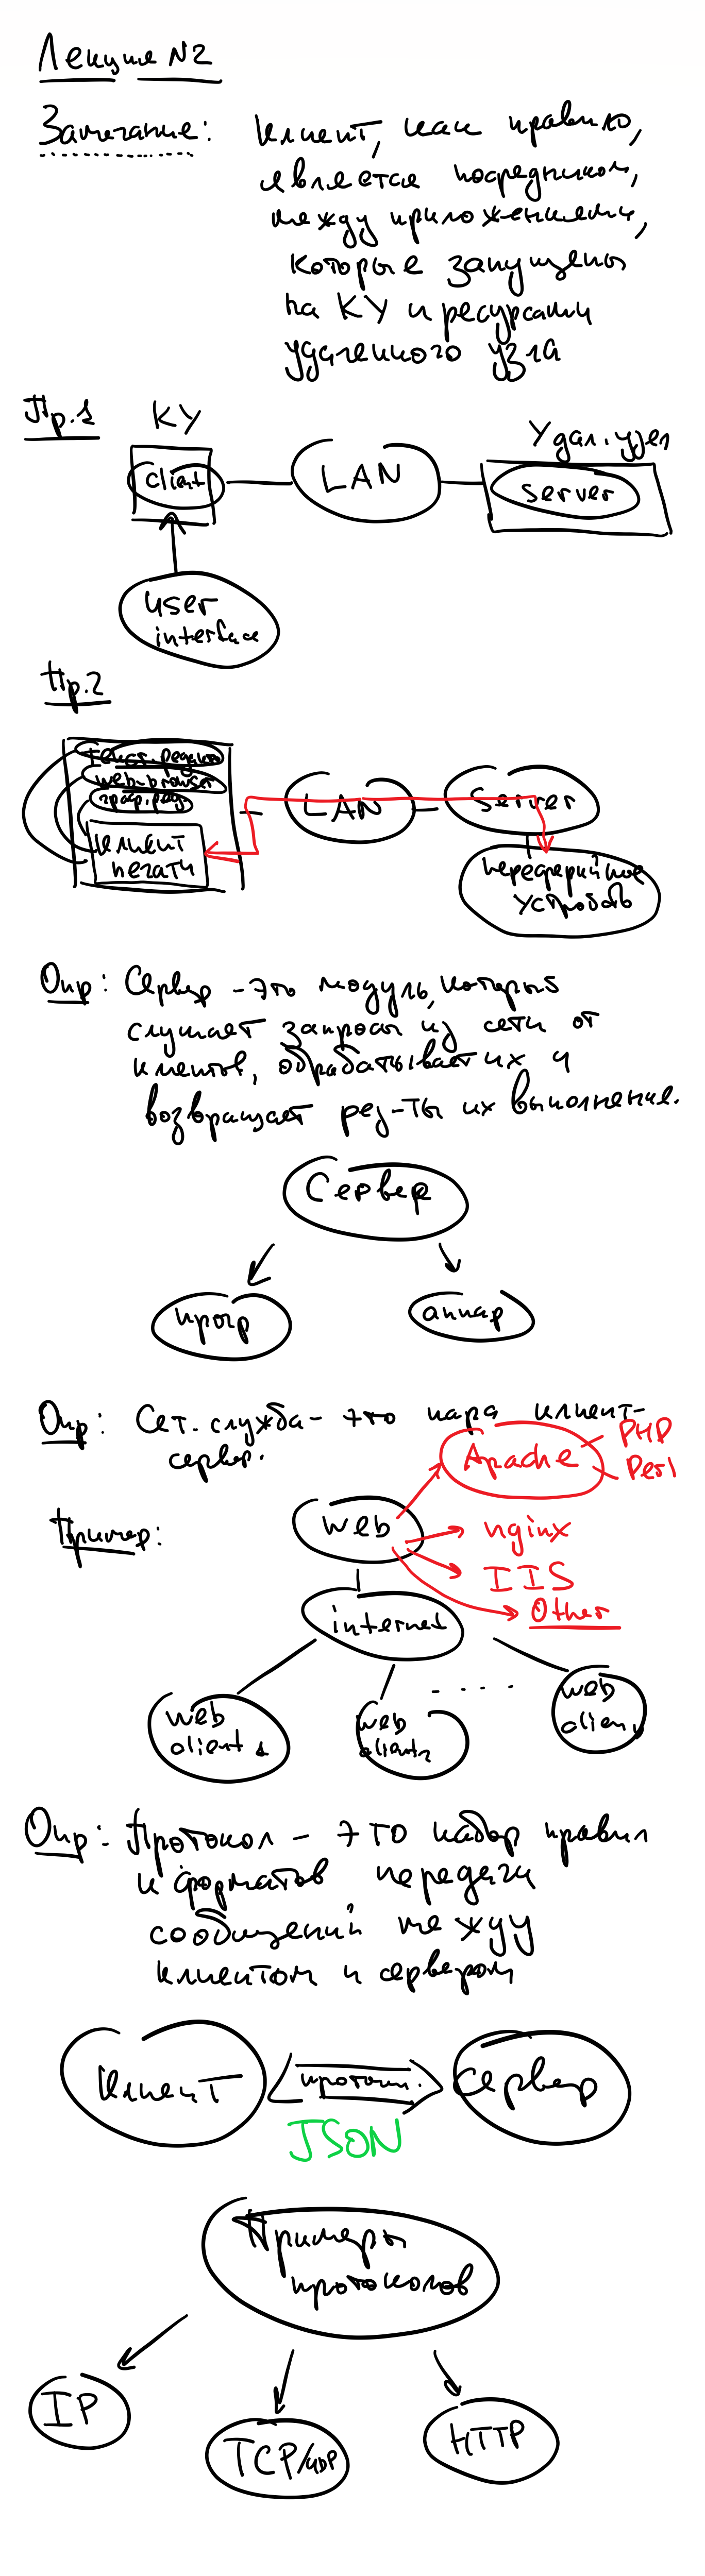 Лекция N2
Замечание: Клиент, как правило,
является посредником,
между приложениями,
которые запущены
на КУ и ресурсами
удаленного узла
Пр.1
КУ
Удал. узел
client
LAN
server
user
interface
Пр.2
текст. редактор
web-browser
граф. ред.
клиент
печати
LAN
Server
периферийное
устройство
Опр: Сервер - это модуль, который
слушает запросы из сети от
клиентов, обрабатывает их и
возвращает рез-ты их выполнения.
Сервер
прогр
аппар
Опр: Сет. служба - это пара клиент-
сервер.
Apache
PHP
Perl
Пример:
web
nginx
IIS
Other
internet
web
client 1
web
client 2
. . . . .
web
client
Опр: Протокол - это набор правил
и форматов передачи
сообщений между
клиентом и сервером
Клиент
протокол
Сервер
JSON
Примеры
протоколов
IP
TCP/UDP
HTTP